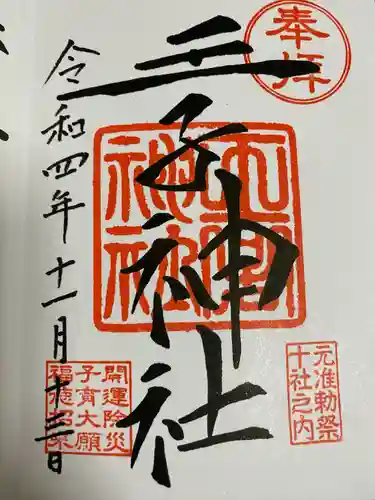 奉拝
王子神社
元准勅祭
十社之内
開運除災
子育大願
福徳招来
令和四年十一月十三日